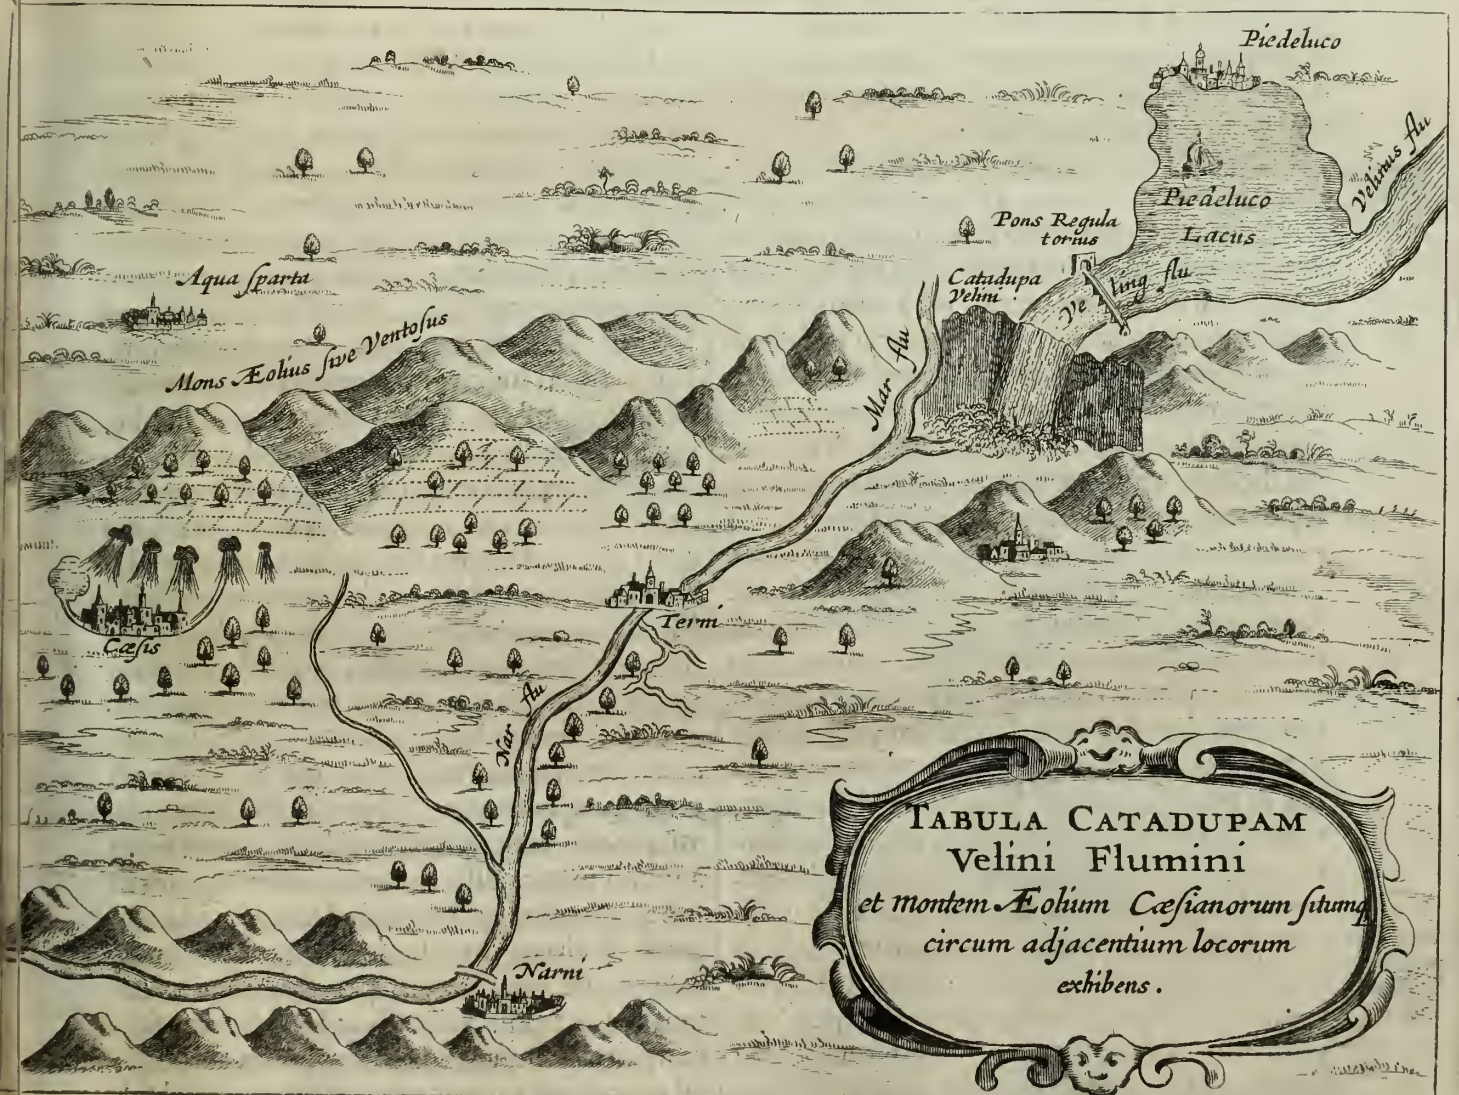 Piedeluco
Velinus flu
Piedeluco
Lacus
Pons Regula
torius
Catadupa
Velini
Velinꝰ flu
Aqua ſparta
Mons Æolius ſive Ventoſus
Mar flu
Cæſis
Terni
Nar flu
Narni
TABULA CATADUPAM
Velini Flumini
et montem Æolium Cæſianorum ſitumq̢
circum adjacentium locorum
exhibens.